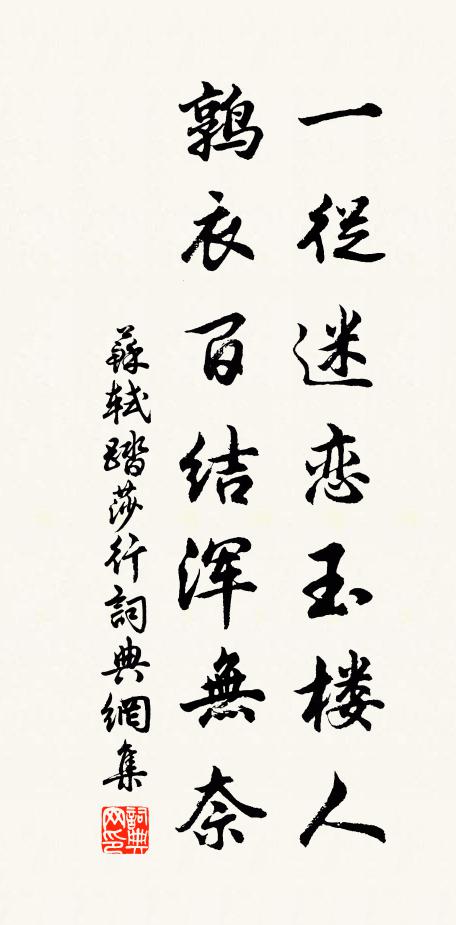 一從迷恋玉楼人
鹑衣百结浑無奈
蘇軾踏莎行詞典網集
詞典
网印